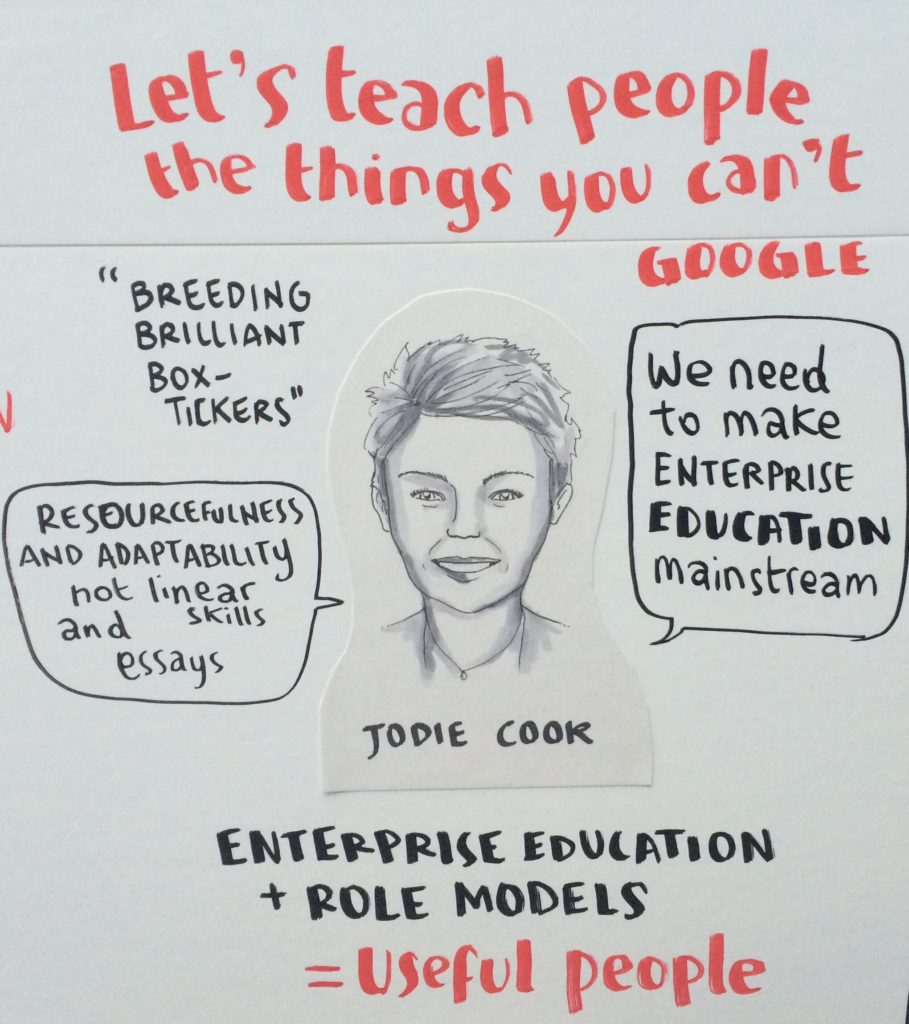 Let's teach people
the things you can't
GOOGLE
"BREEDING
BRILLIANT
BOX-
TICKERS"
RESOURCEFULNESS
AND ADAPTABILITY
not linear
and skills
essays
We need
to make
ENTERPRISE
EDUCATION
mainstream
JODIE COOK
ENTERPRISE EDUCATION
+ ROLE MODELS
= Useful people